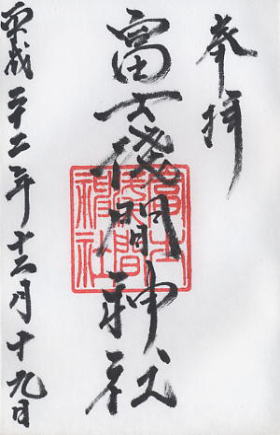 奉拝
富士浅間神社
富士
淺間
神社
平成二十二年十二月十九日